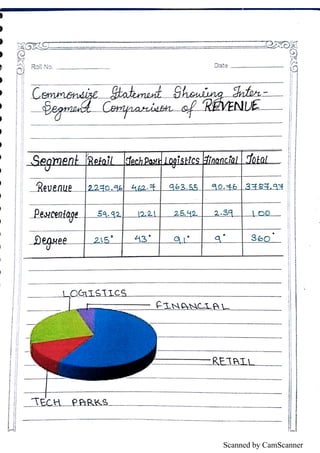 Roll No.
Date
Commonsize Statement Showing Inter-
Segment Comparison of REVENUE
Segment Retail Tech Park Logistics Financial Total
Revenue 2290.96 462.7 963.55 90.46 3787.97
Percentage 59.92 12.21 25.42 2.39 100
Degree 215° 43° 91° 9° 360°
LOGISTICS
FINANCIAL
RETAIL
TECH PARKS
Scanned by CamScanner